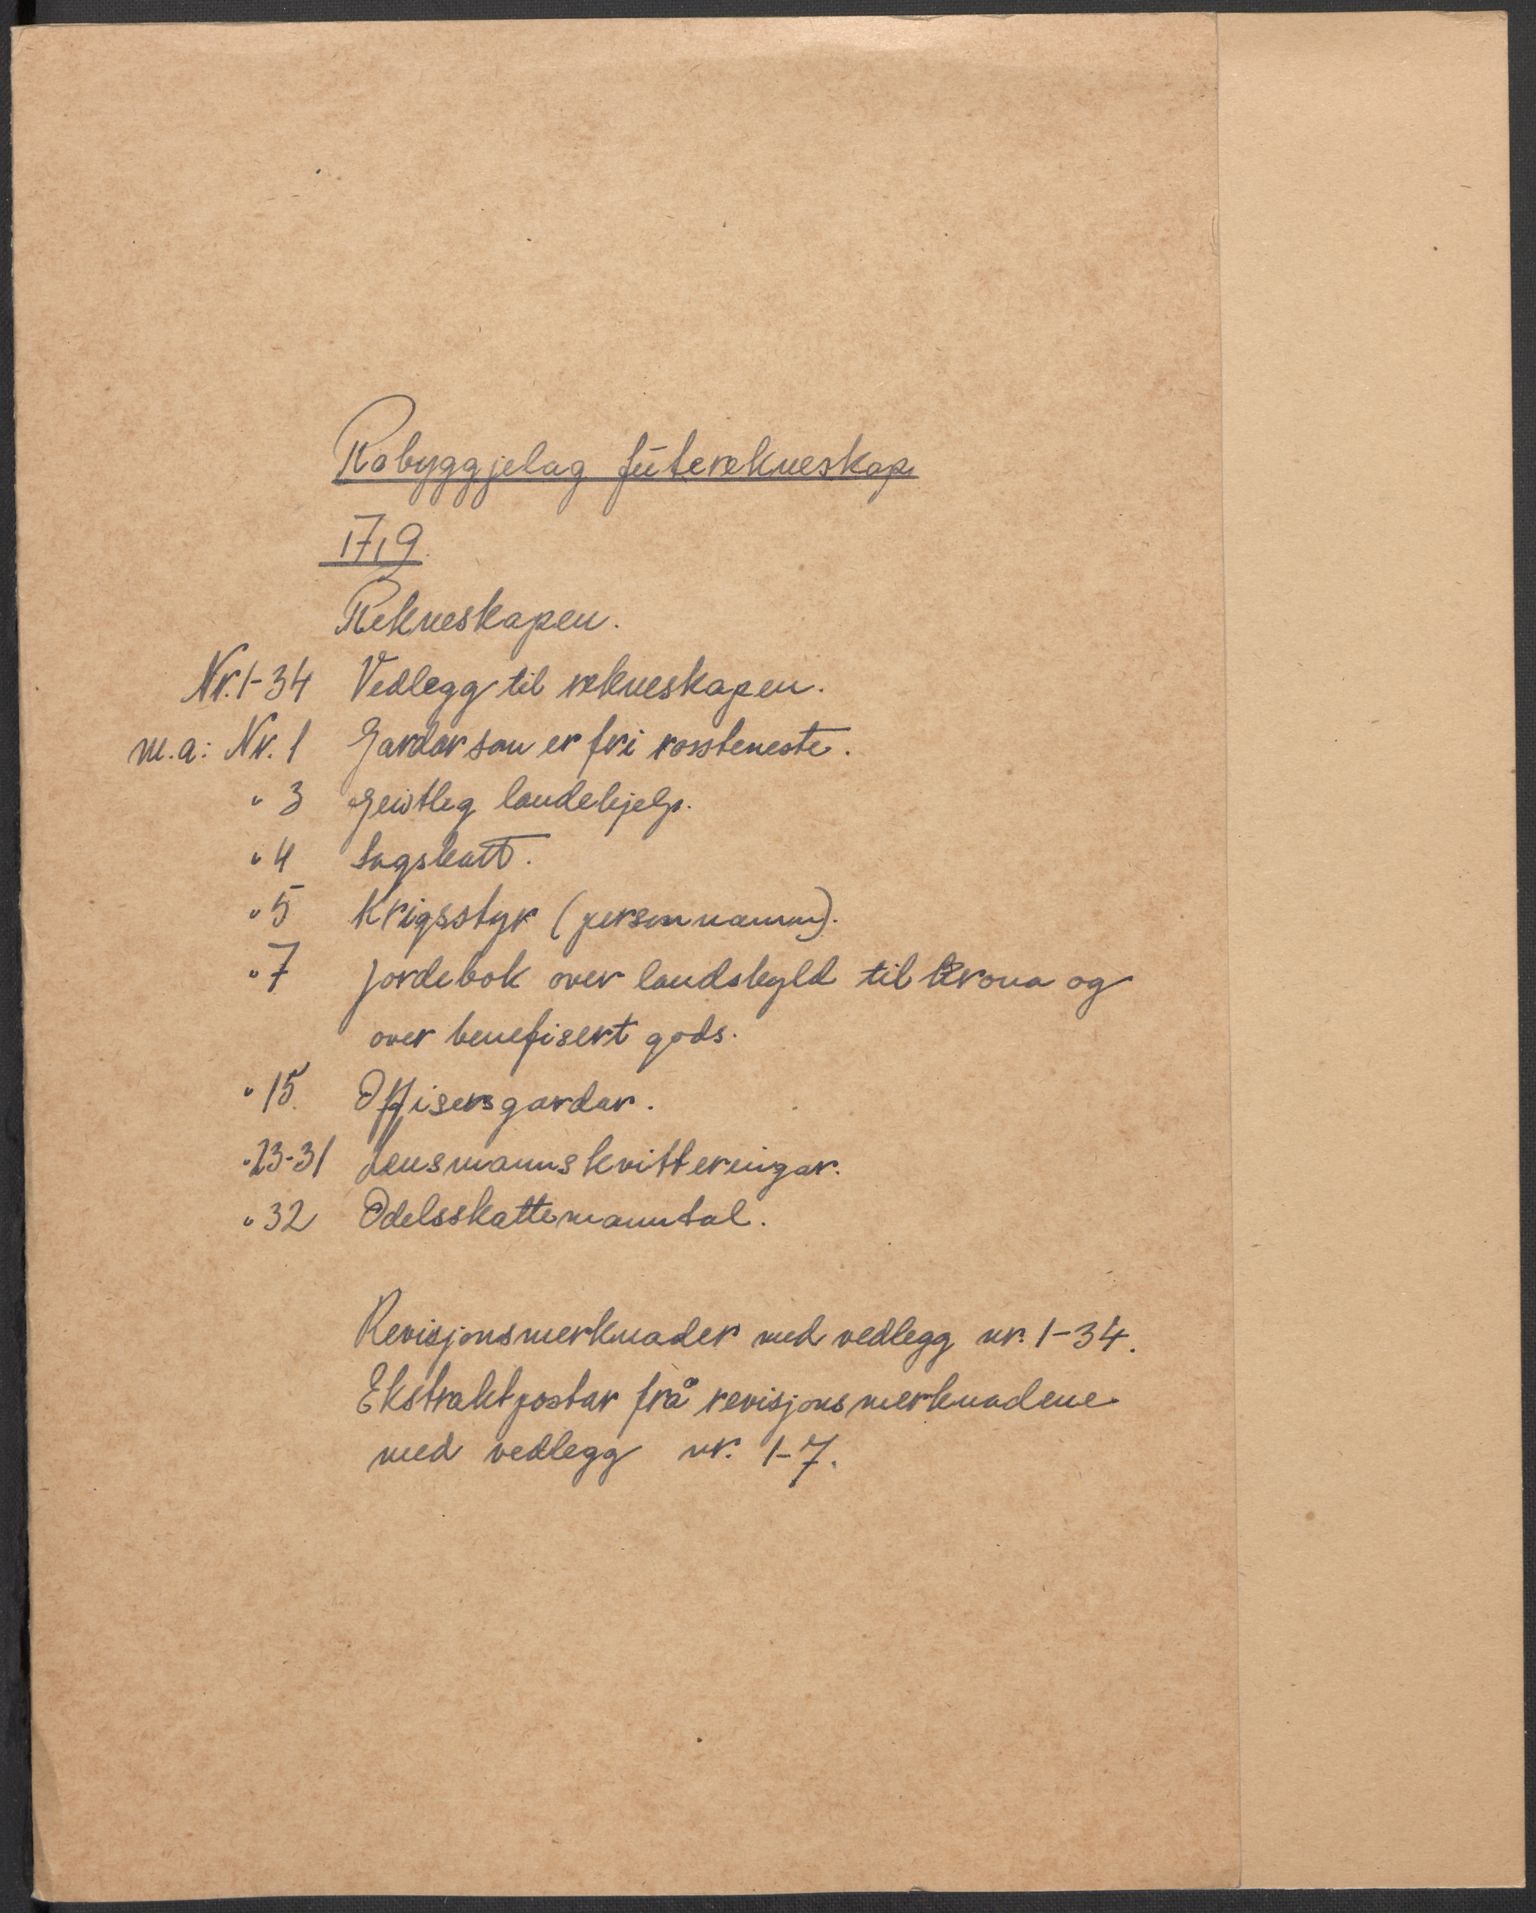 Råbyggjelag futerekneskap
1719.
Rekneskapen.
Nr. 1-34 Vedlegg til rekneskapen.
m.a: Nr. 1 Gardar som er fri rossteneste.
" 3 Geistleg landehjelp.
" 4 Sagskatt.
" 5 Krigsstyr (personnamn).
" 7 Jordebok over landskyld til Krona og
over benefisert gods.
" 15. Offisersgardar.
" 23-31 Lensmannskvitteringar.
" 32 Odelsskattemanntal.
Revisjonsmerknader med vedlegg nr. 1-34.
Ekstraktpostar frå revisjonsmerknadene
med vedlegg nr. 1-7.